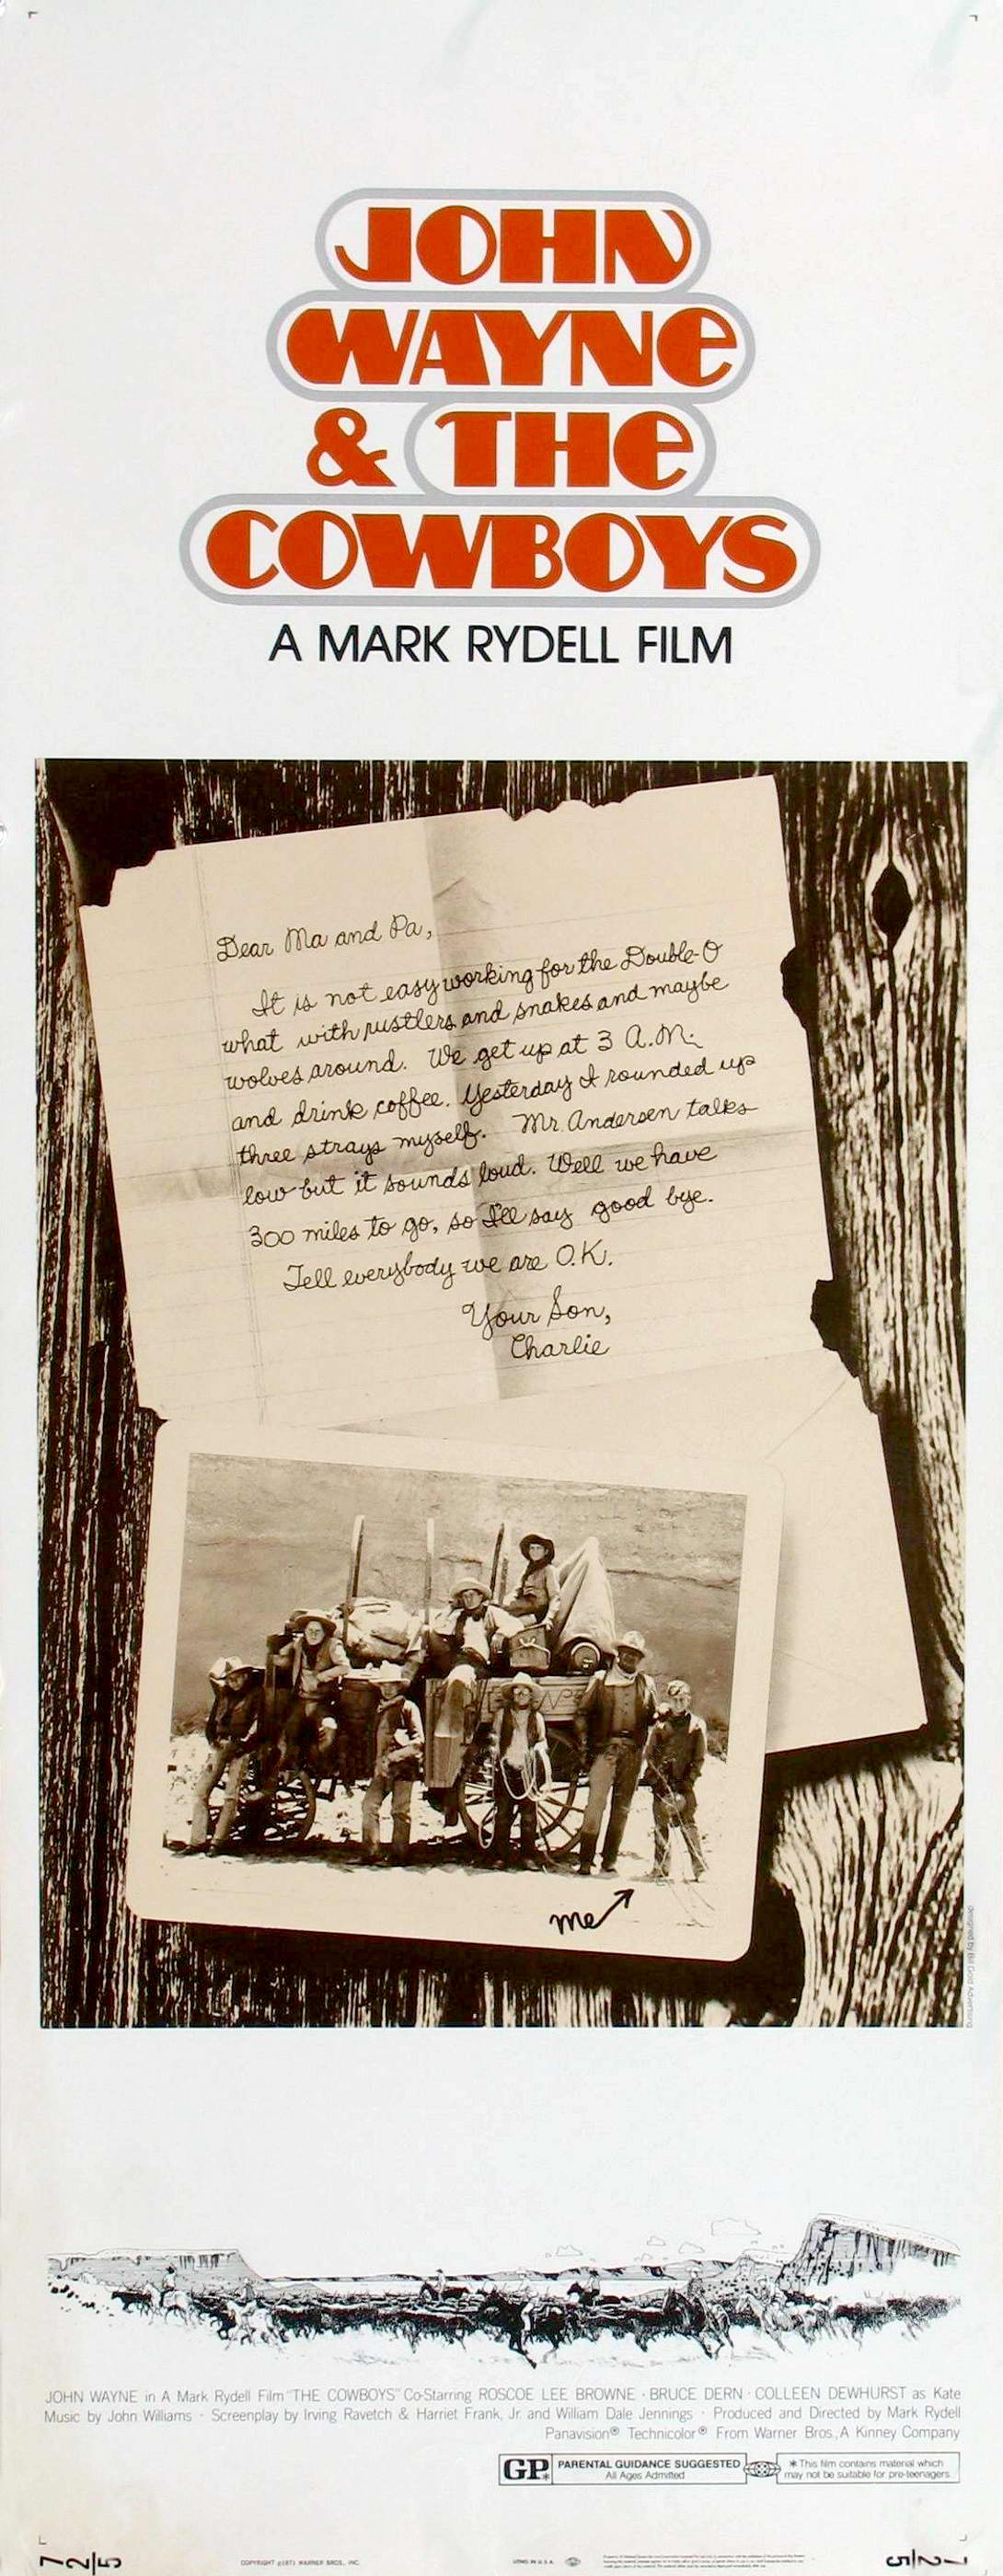 JOHN
WAYNE
& THE
COWBOYS
A MARK RYDELL FILM
Dear Ma and Pa,
It is not easy working for the Double-O
what with rustlers and snakes and maybe
wolves around. We get up at 3 A.M.
and drink coffee. Yesterday I rounded up
three strays myself. Mr. Andersen talks
low but it sounds loud. Well we have
300 miles to go, so I'll say good bye.
Tell everybody we are O.K.
Your Son,
Charlie
me
designed by Bill Gold Advertising
JOHN WAYNE in A Mark Rydell Film "THE COWBOYS" Co-Starring ROSCOE LEE BROWNE · BRUCE DERN · COLLEEN DEWHURST as Kate
Music by John Williams · Screenplay by Irving Ravetch & Harriet Frank, Jr. and William Dale Jennings · Produced and Directed by Mark Rydell
Panavision® Technicolor® From Warner Bros., A Kinney Company
GP* PARENTAL GUIDANCE SUGGESTED
All Ages Admitted
*This film contains material which
may not be suitable for pre-teenagers
72/5
COPYRIGHT ©1971 WARNER BROS., INC.
LITHO. IN U.S.A.
72/5